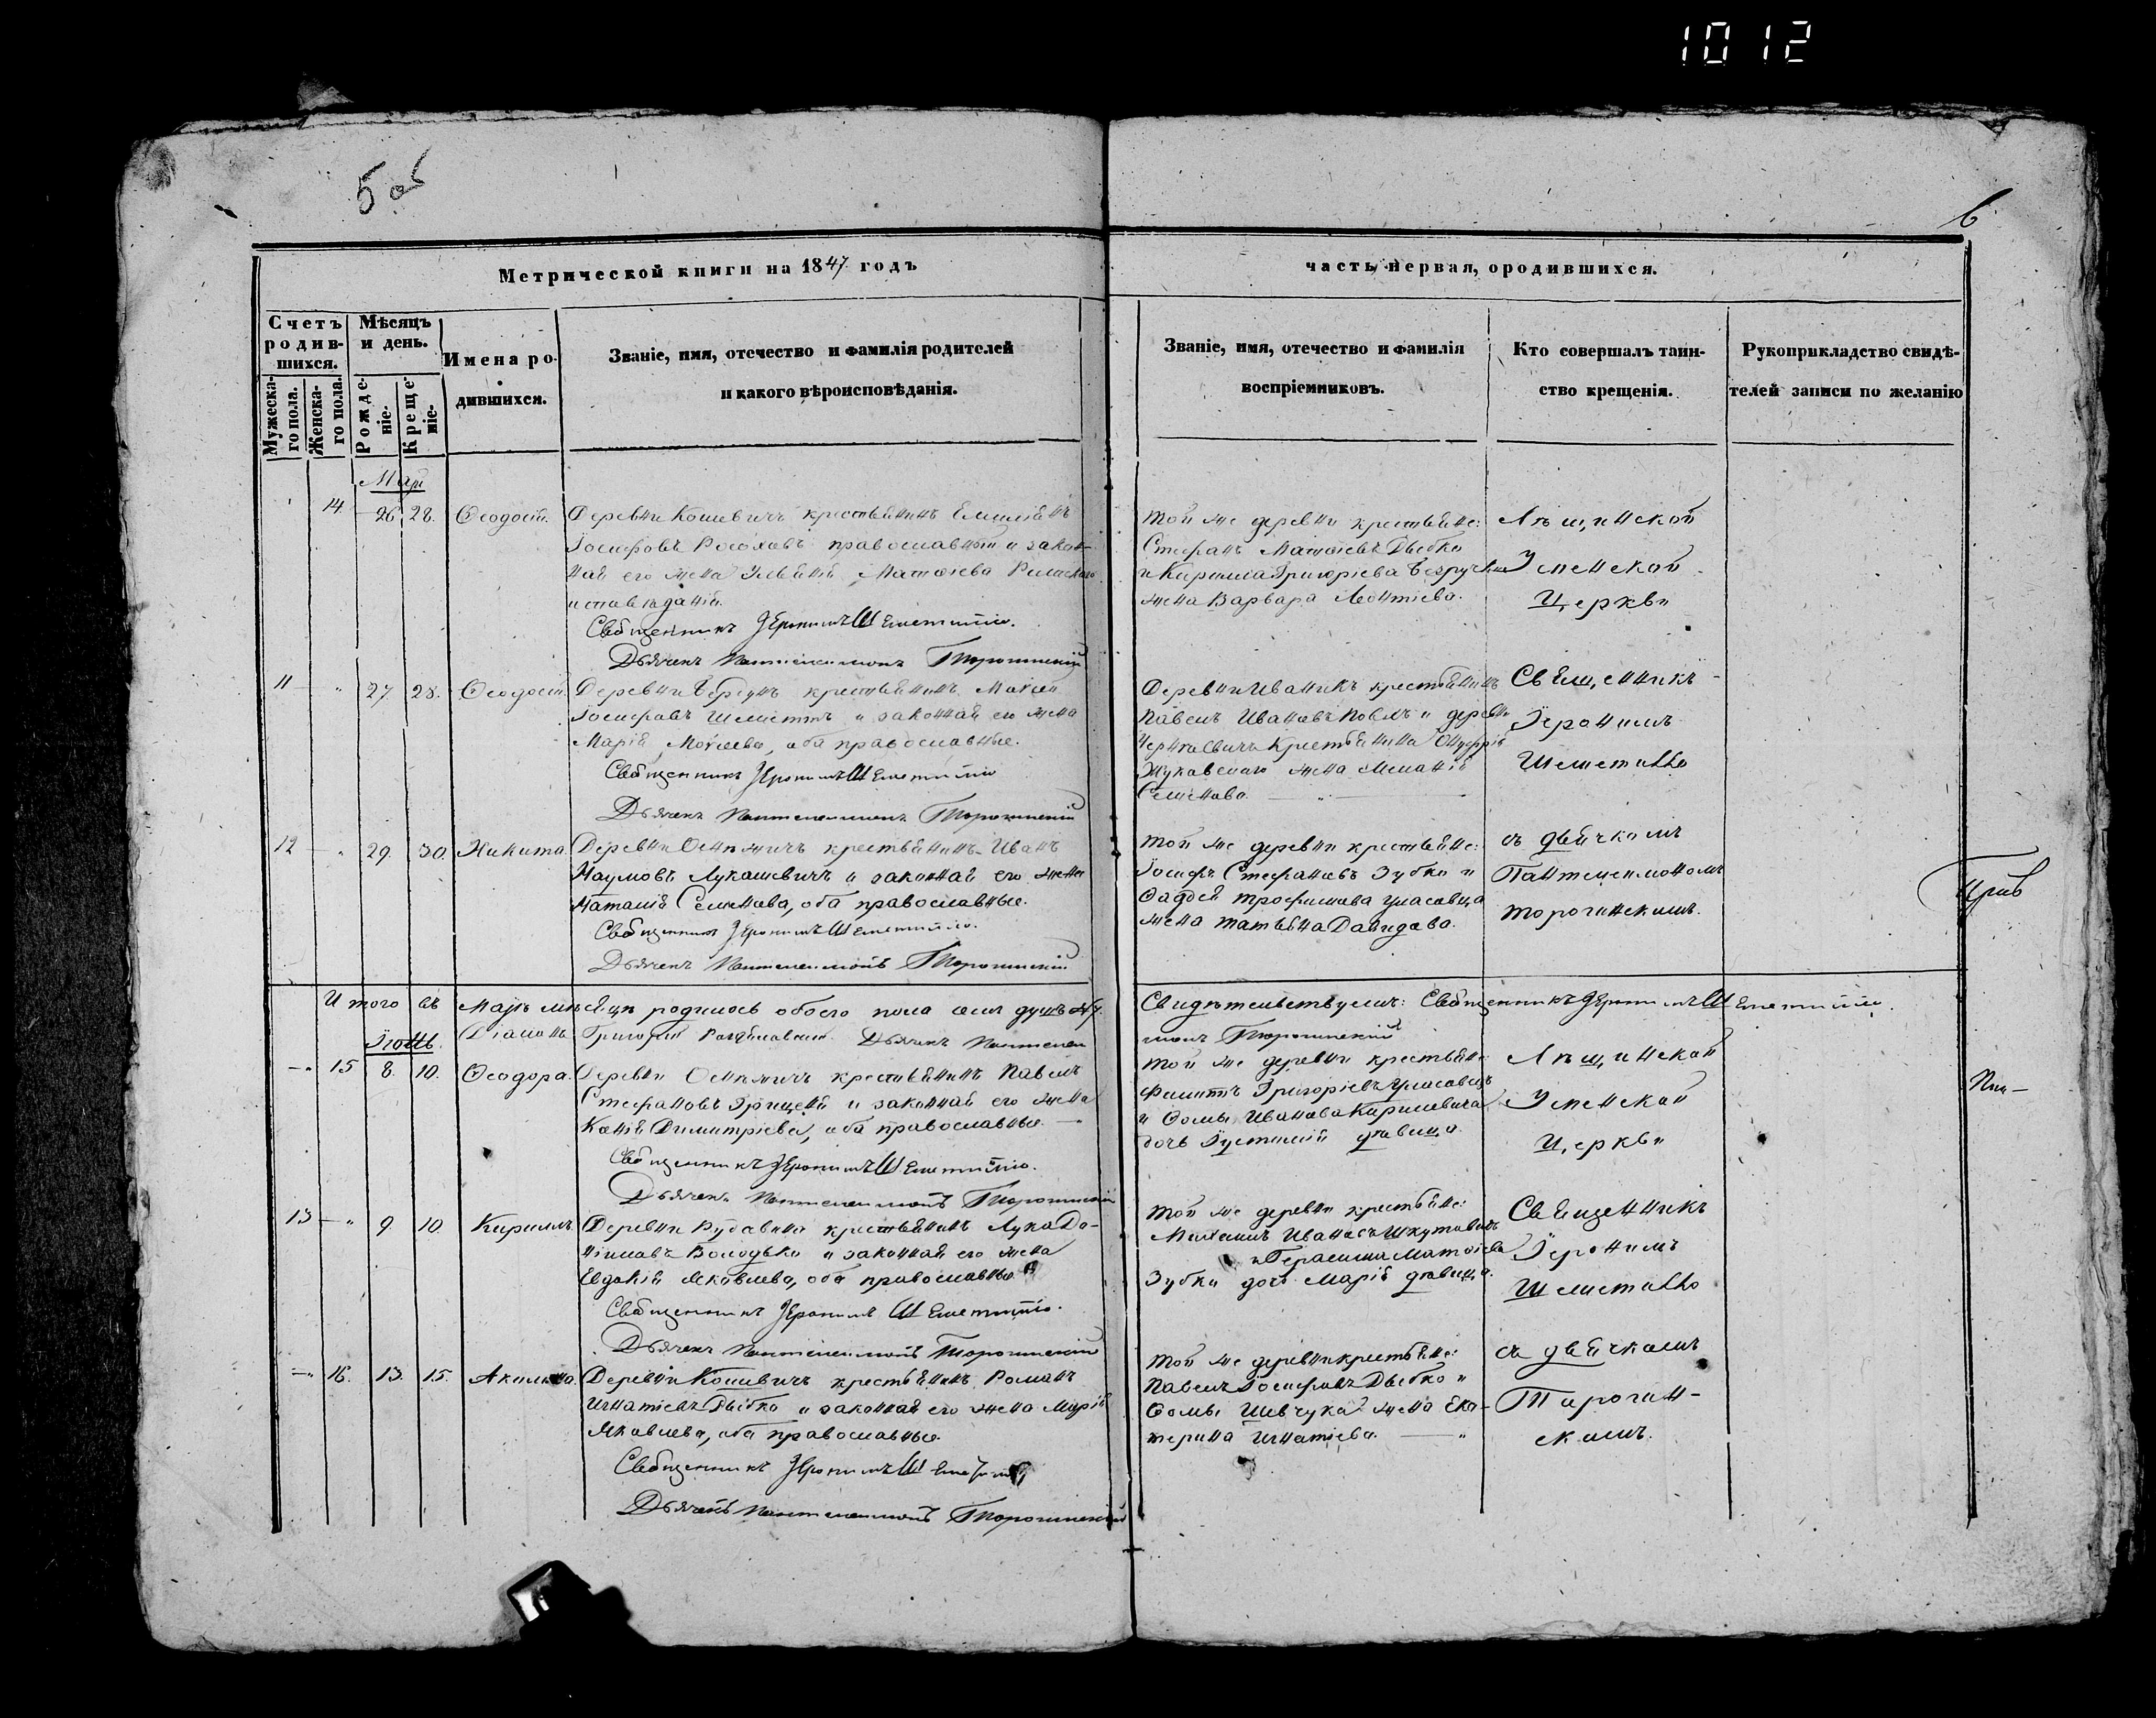 1012
5 об
6
Метрической книги на 1847 годъ
часть первая, о родившихся.
Счетъ родив-
шихся.
Мужеска-
го пола.
Женска-
го пола.
Мѣсяцъ
и день.
Рожде-
ніе.
Креще-
ніе.
Имена ро-
дившихся.
Званіе, имя, отечество и фамилія родителей
и какого вѣроисповѣданія.
Званіе, имя, отечество и фамилія
воспріемниковъ.
Кто совершалъ таин-
ство крещенія.
Рукоприкладство свидѣ-
телей записи по желанію
Май
14. 26 28. Ѳеодосія. Деревни Кошевичъ крестьянинъ Емиліянъ
Іосифовъ православный и закон-
ная его жена Матѳіева Римскаго
исповѣданія.
Священникъ Іеронимъ Шеметилло.
Дьячекъ Пантелеимонъ Торочинскій
той же деревни крестьяне:
Стефанъ Матѳіевъ Дыбко
и Кирилла Григоріева
жена Варвара Леонтіева.
Лѣщинской
Успенской
Церкви
11 — " 27. 28. Ѳеодосій. Деревни крестьянинъ Моисей
Іосифовъ и законная его жена
Марія Моисеева, оба православные.
Священникъ Іеронимъ Шеметилло
Дьячекъ Пантелеимонъ Торочинскій
Деревни Иваникъ крестьянинъ
Павелъ Ивановъ и деревни
крестьянина Онуфрія
Жуковскаго жена Меланія
Семенова.
Священникъ
Іеронимъ
Шеметилло
12 — " 29. 30. Никита. Деревни Оснѣжичъ крестьянинъ Иванъ
Наумовъ Лукашевичъ и законная его жена
Наталія Семенова, оба православные.
Священникъ Іеронимъ Шеметилло.
Дьячекъ Пантелеимонъ Торочинскій
той же деревни крестьяне:
Іосифъ Стефановъ Зубко и
Фадѣя Трофимова Уласовца
жена Татьяна Давидова.
съ дьячкомъ
Пантелеимономъ
Торочинскимъ.
Итого въ Маіѣ мѣсяцѣ родилось обоего пола семь душъ №7.
Діаконъ Григорій Дьячекъ Пантелеи
Свидѣтельствуемъ: Священникъ Іеронимъ Шеметилло.
монъ Торочинскій
Іюнь.
— " 15 8. 10. Ѳеодора. Деревни Оснѣжичъ крестьянинъ Павелъ
Стефановъ Грицень и законная его жена
Ксенія Димитріева, оба православные. —
Священникъ Іеронимъ Шеметилло.
Дьячекъ Пантелеимонъ Торочинскій
той же деревни крестьяне
Филиппъ Григоріевъ Уласовецъ
и Ѳомы Иванова Кирилевича
дочь Іустинія дѣвица.
Лѣщинской
Успенской
Церкви
13 — " 9 10. Кириллъ. Деревни Рудавина крестьянинъ Лука До-
Володько и законная его жена
Евдокія Яковлева, оба православные
Священникъ Іеронимъ Шеметилло.
Дьячекъ Пантелеимонъ Торочинскій
той же деревни крестьяне:
Михаилъ Ивановъ
и Герасима Матѳіева
Зубки дочь Марія дѣвица.
Священникъ
Іеронимъ
Шеметилло
— " 16. 13. 15. Акилина. Деревни Кошевичъ крестьянинъ Романъ
Игнатіевъ Дыбко и законная его жена Марія
Яковлева, оба православные.
Священникъ Іеронимъ Шеметилло
Дьячекъ Пантелеимонъ Торочинскій
той же деревни крестьяне:
Павелъ Іосифовъ Дыбко и
Ѳомы Шевчука жена Ека-
терина Игнатіева. — "
съ дьячкомъ
Торочин-
скимъ.